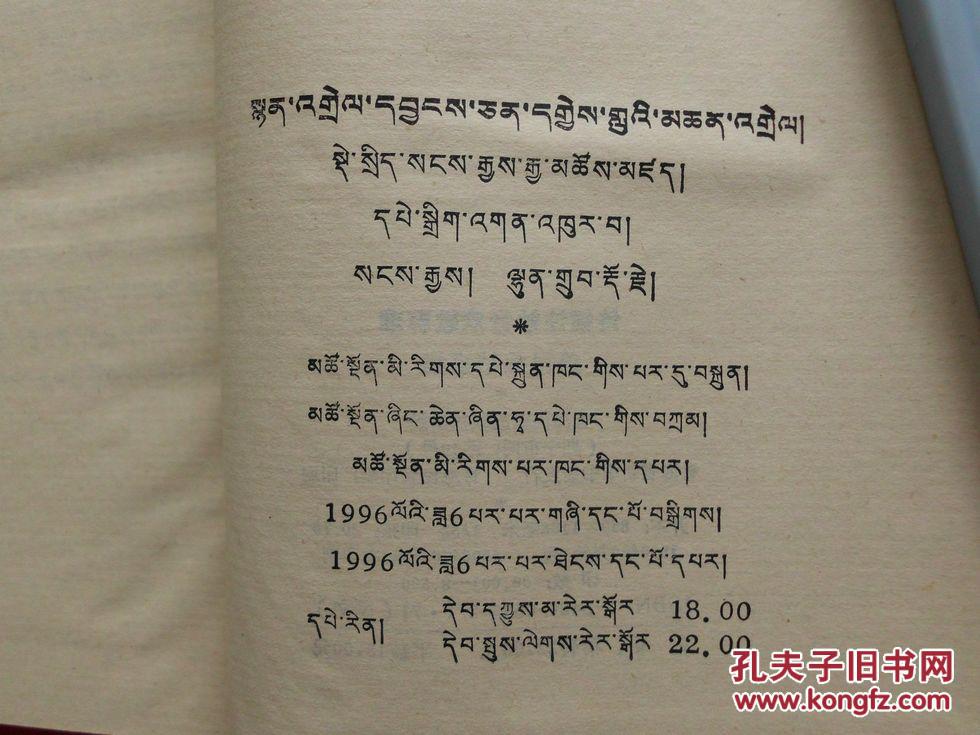 སྙན་འགྲེལ་དབྱངས་ཅན་དགྱེས་གླུའི་མཆན་འགྲེལ།
སྡེ་སྲིད་སངས་རྒྱས་རྒྱ་མཚོས་མཛད།
དཔེ་སྒྲིག་འགན་འཁུར་བ།
སངས་རྒྱས། ལྷུན་གྲུབ་རྡོ་རྗེ།
*
མཚོ་སྔོན་མི་རིགས་དཔེ་སྐྲུན་ཁང་གིས་པར་དུ་བསྐྲུན།
མཚོ་སྔོན་ཞིང་ཆེན་ཞིན་ཧྭ་དཔེ་ཁང་གིས་བཀྲམ།
མཚོ་སྔོན་མི་རིགས་པར་ཁང་གིས་དཔར།
1996ལོའི་ཟླ6པར་པར་གཞི་དང་པོ་བསྒྲིགས།
1996ལོའི་ཟླ6པར་པར་ཐེངས་དང་པོ་དཔར།
དཔེ་རིན། དེབ་དཀྱུས་མ་རེར་སྒོར 18.00
དེབ་སྤུས་ལེགས་རེར་སྒོར 22.00
孔夫子旧书网
www.kongfz.com